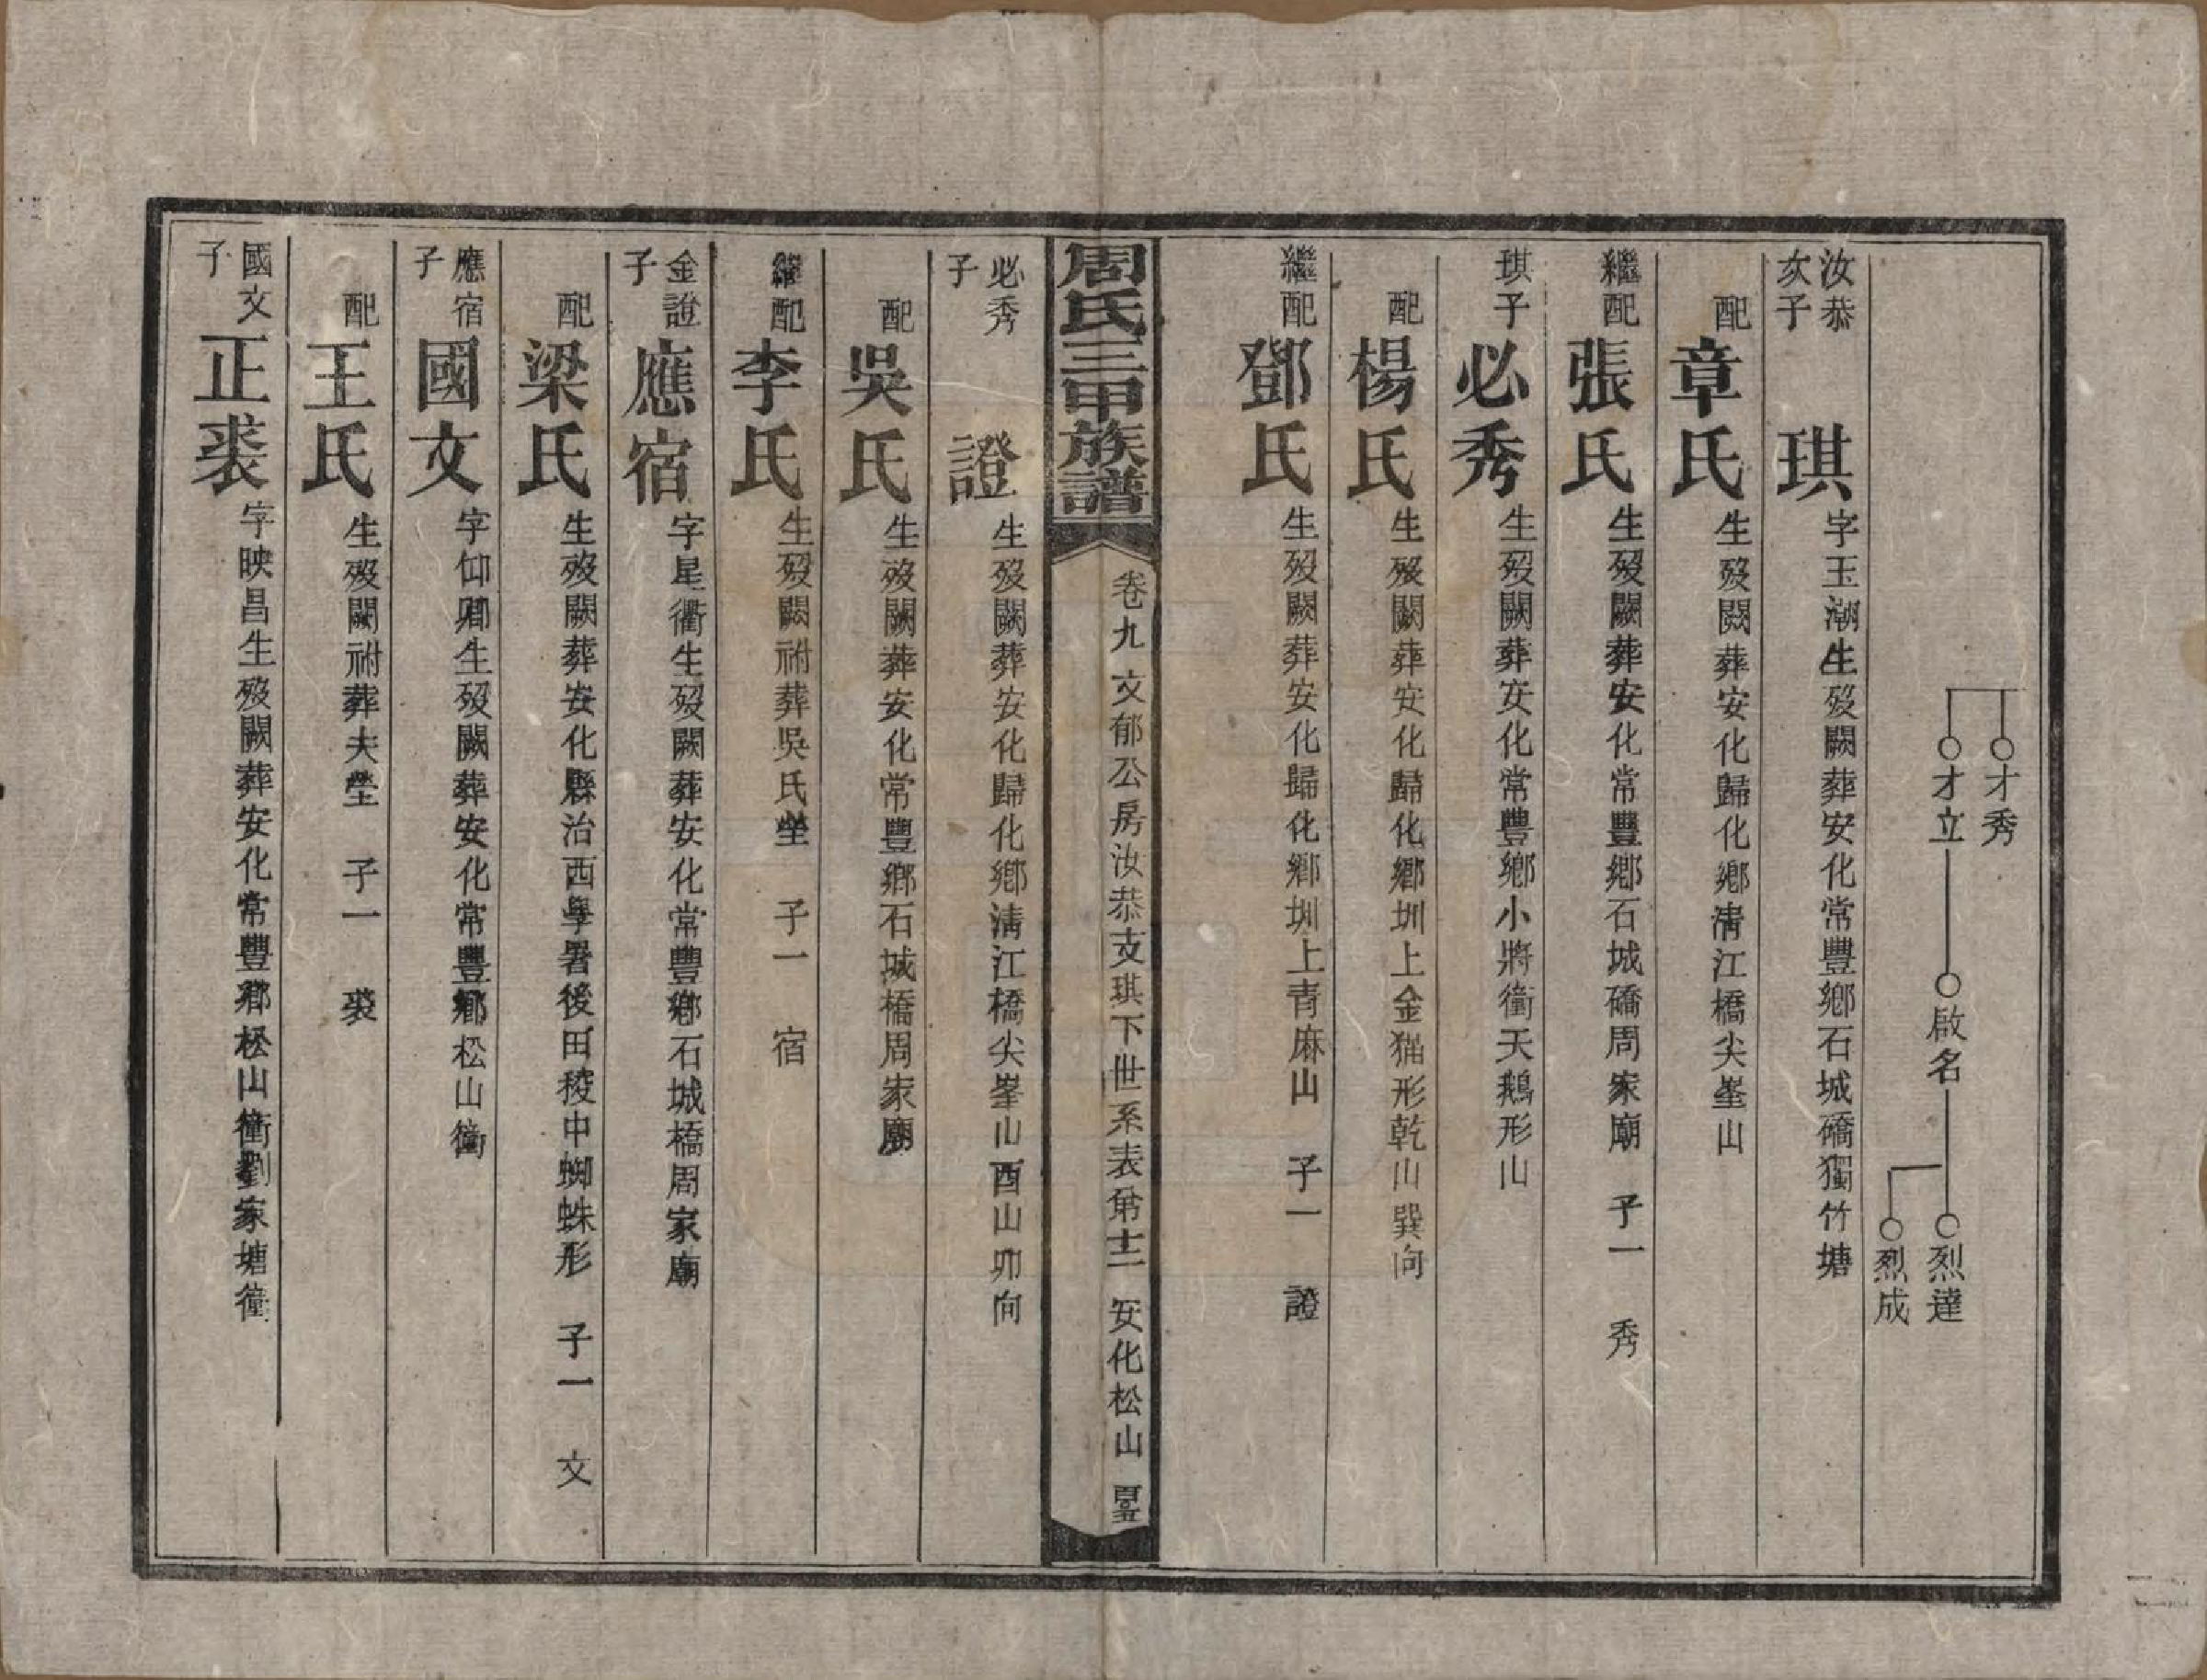 才秀
才立 啟名 烈達
烈成
汝恭次子 琪 字玉潮生歿闕葬安化常豐鄉石城礄獨竹塘
配 章氏 生歿闕葬安化歸化鄉淸江橋尖峯山
繼配 張氏 生歿闕葬安化常豐鄉石城礄周家廟 子一 秀
琪子 必秀 生歿闕葬安化常豐鄉小將衝天鵝形山
配 楊氏 生歿闕葬安化歸化鄉圳上金猫形乾山巽向
繼配 鄧氏 生歿闕葬安化歸化鄉圳上青麻山 子一 證
周氏三甲族譜 卷九 文郁公房汝恭支琪下世系表第十二 安化松山
必秀子 證 生歿闕葬安化歸化鄉淸江橋尖峯山酉山卯向
配 吳氏 生歿闕葬安化常豐鄉石城橋周家廟
繼配 李氏 生歿闕祔葬吳氏塋 子一 宿
金證子 應宿 字星衢生歿闕葬安化常豐鄉石城橋周家廟
配 梁氏 生歿闕葬安化縣治西學署後田稜中蜘蛛形 子一 文
應宿子 國文 字仰卿生歿闕葬安化常豐鄉松山衝
配 王氏 生歿闕祔葬夫塋 子一 裘
國文子 正裘 字映昌生歿闕葬安化常豐鄉松山衝劉家塘衝